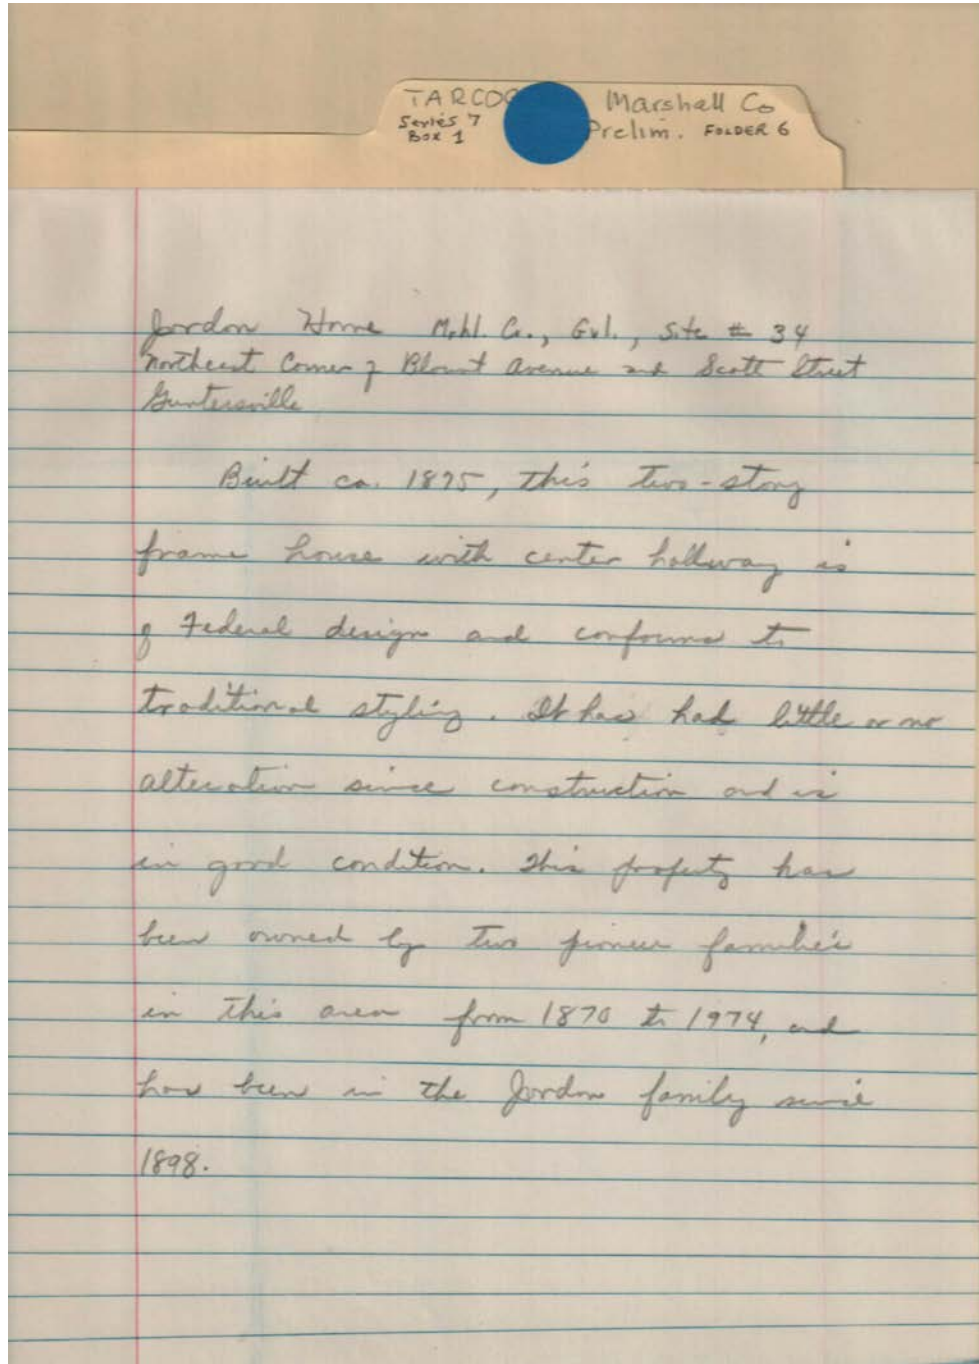 TARCOG Marshall Co
Series 7 Prelim. FOLDER 6
Box 1
Jordon Home Mshl. Co., Gvl., Site # 34
Northeast Corner of Blount Avenue and Scott Street
Guntersville
Built ca. 1895, this two-story
frame house with center hallway is
of Federal design and conforms to
traditional styling. It has had little or no
alteration since construction and is
in good condition. This property has
been owned by two pioneer families
in this area from 1870 to 1974, and
has been in the Jordon family since
1898.